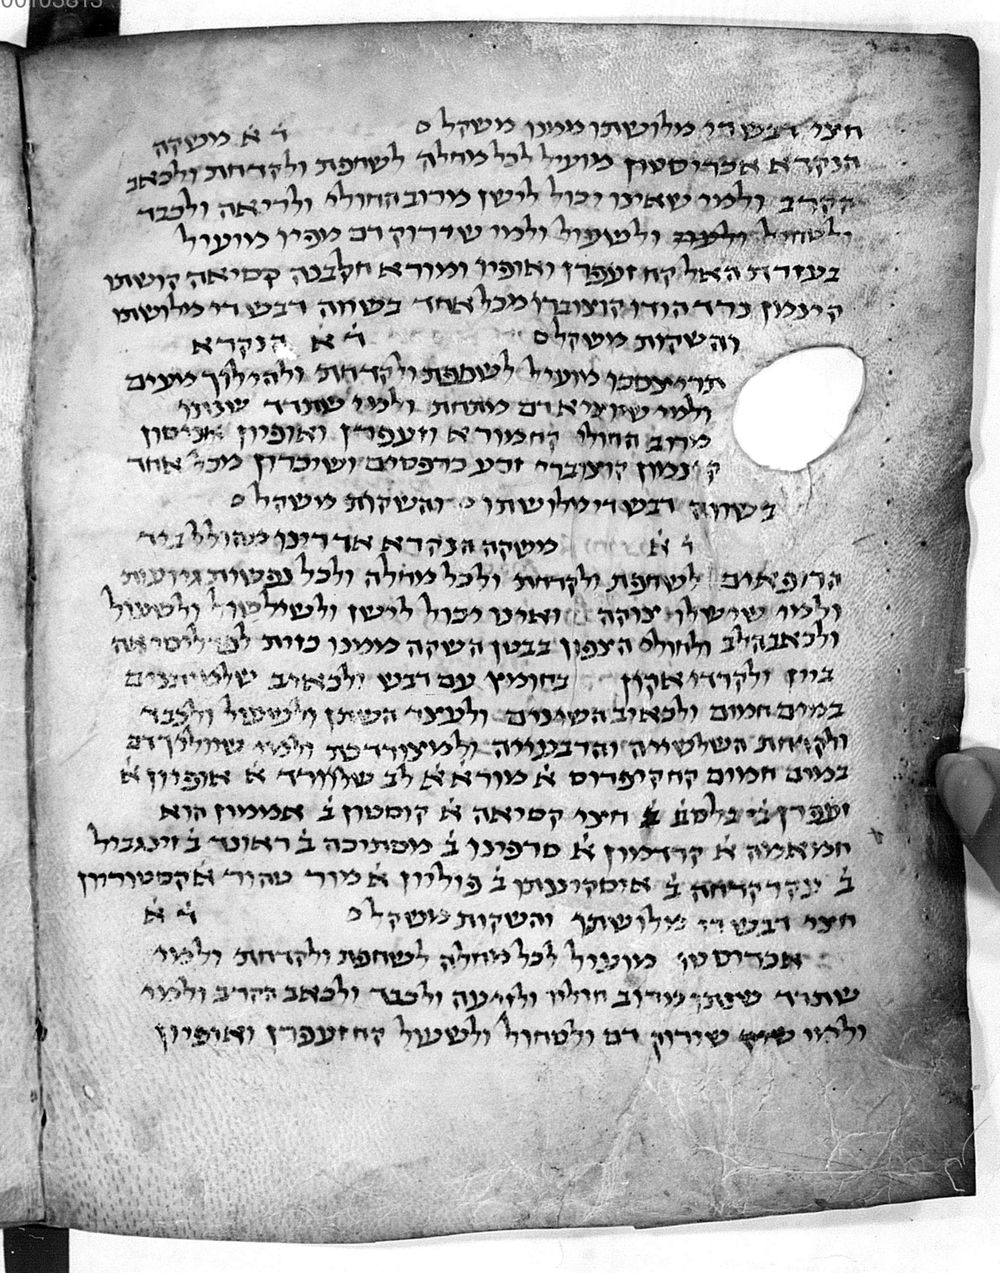 חצי דבש די מלושתו ממנו משקל ס ד׳ א׳ משקה
הנקרא אכריסטון מועיל לכל מחלה לשחפת ולקדחת ולכאב
הקרב ולמי שאינו יכול לישן מרוב החולי ולריאה ולכבד
ולטחול ולשעול ולמי שירוק דם מפיו מועיל
בעזרת האל קח זעפרן ואופיו ומורא חלבנה קסיאה קושתו
קינמון נרד הודו קוצוברי מכל אחד בשוה דבש די מלושתו
והשקות משקל ס ד׳ א׳ הנקרא
מועיל לשחפת ולקדחת ולהילוך מעים
ולמי שיוציא דם מתחת ולמי שתדד שנתו
מרוב החולי קח מורא וזעפרן ואופיון אניסון
קינמון קוצוברי זרע כרפסים ושיכרון מכל אחד
בשווה דבש די מלושתו והשקות משקל ס
ד׳ א׳ משקה הנקרא אדריינו מהולל ביד
הרופאים לשחפת ולקדחת ולכל מחלה ולכל נפשות גויעות
ולמי שיש לו צוקה ואינו יכול לישן ולשילשול ולטחול
ולכאב הלב ולחולי הצפון בבטן השקה ממנו כזית
ביין ולקרדיאקון בחומץ עם דבש ולכאיב שלמתנים
במים חמים ולכאיב השינים ולעוצר השתן ולשעול ולכבד
ולקדחת השלשיה והרבעייה ולמי שיוליך דם
במים חמים קח קיפרוס א׳ מורא א׳ לב שליורד א׳ אופיון א׳
זעפרן ב׳ בלסם ב׳ חצי קסיאה א׳ קוסטון ב׳ אמומון הוא
חמאמה א׳ קרדמון א׳ סרפינו ב׳ מסתיכה ב׳ ראונד ב׳ זינגביל
ב׳ עקרקרחה ב׳ ב׳ פוליון א׳ מור טהור א׳ קסטוריון
חצי דבש די מלושתך והשקות משקל ס ד׳ א׳
אכריסטו׳ מועיל לכל מחלה לשחפת ולקדחת ולמי
שתדד שנתו מרוב חוליו ולזיעה ולכבד ולכאב הקרב ולמי
ולמי שירוק דם ולטחול ולשעול קח זעפרן ואופיון